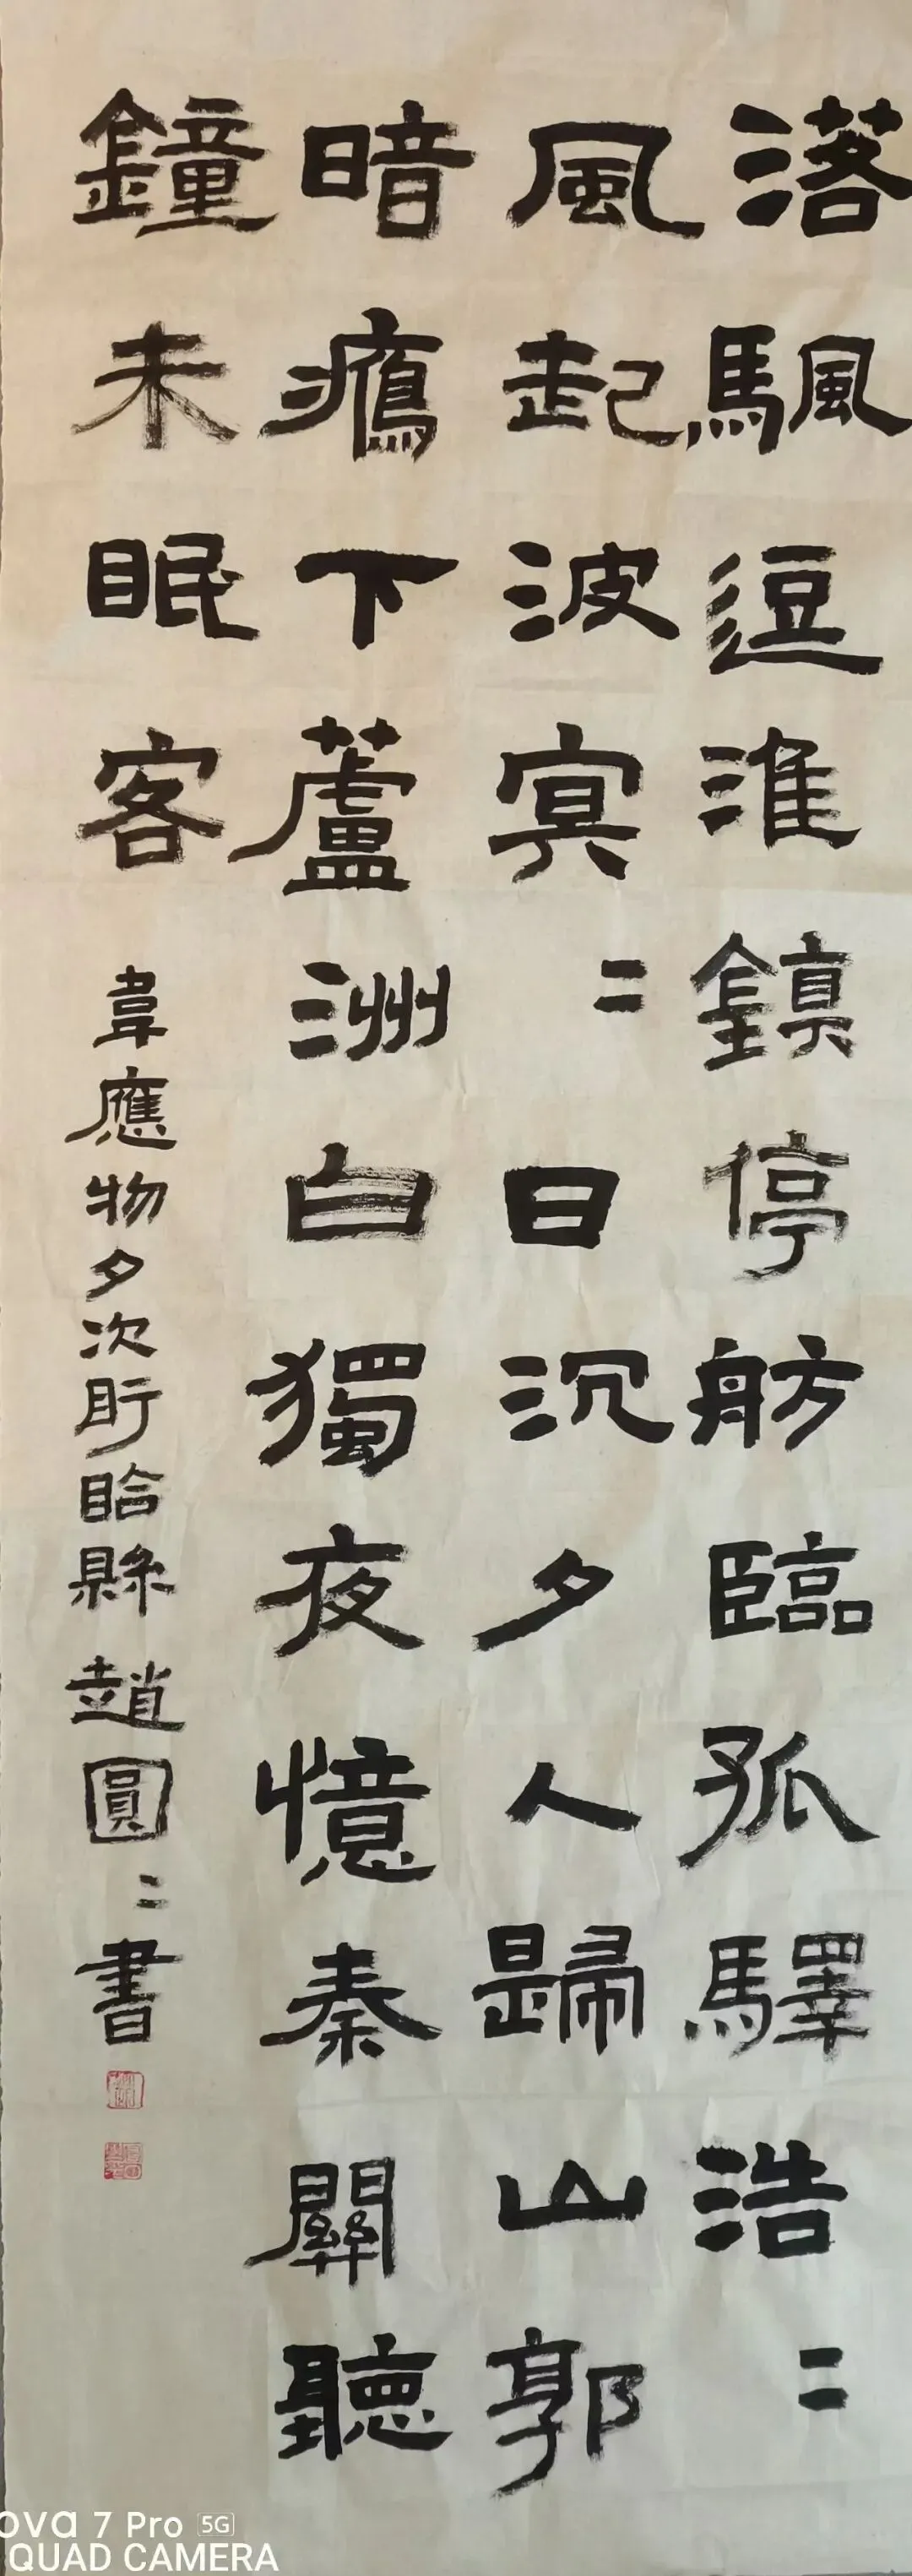 落颿逗淮鎮停舫臨孤驛浩〻
風起波冥〻日沉夕人歸山郭
暗鴈下蘆洲白獨夜憶秦關聽
鐘未眠客
韋應物夕次盱眙縣 趙圓〻書
ova 7 Pro 5G
QUAD CAMERA